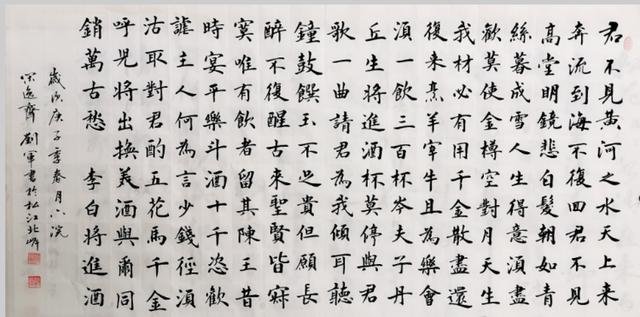 君不見黃河之水天上来
奔流到海不復回君不見
高堂明鏡悲白髮朝如青
絲暮成雪人生得意湏盡
歡莫使金樽空對月天生
我材必有用千金散盡還
復来烹羊宰牛且為樂會
湏一飲三百杯岑夫子丹
丘生將進酒杯莫停與君
歌一曲請君為我傾耳聽
鐘鼓饌玉不足貴但願長
醉不復醒古来聖賢皆寂
寞唯有飲者留其陳王昔
時宴平樂斗酒十千恣歡
謔主人何為言少錢徑湏
沽取對君酌五花馬千金
呼兒將出換美酒與爾同
銷萬古愁 李白將進酒
歲次庚子季春月
逸齋劉軍書於松江北